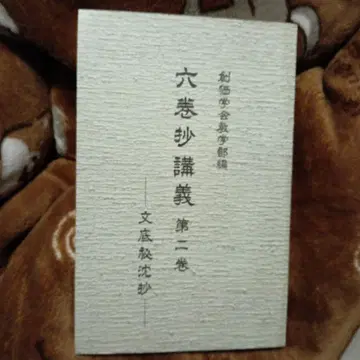 創価学会教学部編
六巻抄講義 第二巻
――文底秘沈抄――